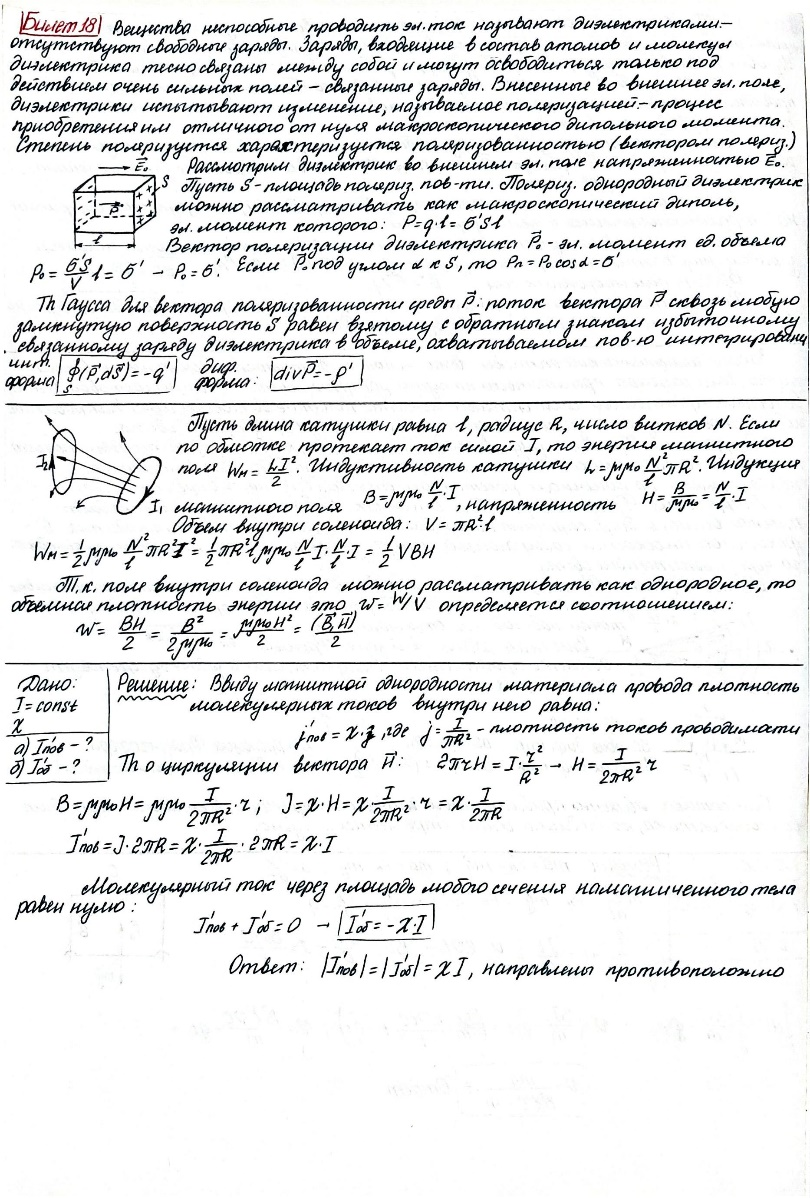 Билет 18 Вещества неспособные проводить эл. ток называют диэлектриками –
отсутствуют свободные заряды. Заряды, входящие в состав атомов и молекул
диэлектрика тесно связаны между собой и могут освободиться только под
действием очень сильных полей – связанные заряды. Внесенные во внешнее эл. поле,
диэлектрики испытывают изменение, называемое поляризацией – процесс
приобретения им отличного от нуля макроскопического дипольного момента.
Степень поляризуется характеризуется поляризованностью (вектором поляриз.)
E⃗₀ Рассмотрим диэлектрик во внешнем эл. поле напряженностью E⃗₀.
S Пусть S - площадь поляриз. пов-ти. Поляриз. однородный диэлектрик
P⃗ можно рассматривать как макроскопический диполь,
l эл. момент которого: P = q·l = σ'Sl
Вектор поляризации диэлектрика P⃗₀ - эл. момент ед. объема
P₀ = σ'S/V l = σ' → P₀ = σ'. Если P⃗₀ под углом α к S, то Pn = P₀cosα = σ'
Th Гаусса для вектора поляризованности среды P⃗: поток вектора P⃗ сквозь любую
замкнутую поверхность S равен взятому с обратным знаком избыточному
связанному заряду диэлектрика в объеме, охватываемом пов-ю интегрировани
инт. форма ∮S (P⃗, dS⃗) = -q' диф. форма: div P⃗ = -ρ'
Пусть длина катушки равна l, радиус R, число витков N. Если
I₂ по обмотке протекает ток силой I, то энергия магнитного
поля Wм = LI²/2. Индуктивность катушки L = μμ₀ N²/l πR². Индукция
I₁ магнитного поля B = μμ₀ N/l · I, напряженность H = B/μμ₀ = N/l · I
Объем внутри соленоида: V = πR²l
Wм = 1/2 μμ₀ N²/l πR²I² = 1/2 πR²l μμ₀ N/l I · N/l · I = 1/2 VBH
Т.к. поле внутри соленоида можно рассматривать как однородное, то
объемная плотность энергии это w = W/V определяется соотношением:
w = BH/2 = B²/2μμ₀ = μμ₀H²/2 = (B⃗, H⃗)/2
Дано: Решение: Ввиду магнитной однородности материала провода плотность
I = const молекулярных токов внутри него равна:
χ j'пов = χ·j, где j = I/πR² - плотность токов проводимати
а) I'пов - ?
б) I'об - ? Th о циркуляции вектора H⃗: 2πrH = I · r²/R² → H = I/2πR² r
B = μμ₀H = μμ₀ I/2πR² · r; J = χ·H = χ· I/2πR² · r = χ· I/2πR
I'пов = J·2πR = χ· I/2πR · 2πR = χ·I
Молекулярный ток через площадь любого сечения намагниченного тела
равен нулю:
I'пов + I'об = 0 → I'об = -χ·I
Ответ: |I'пов| = |I'об| = χI, направлены противоположно